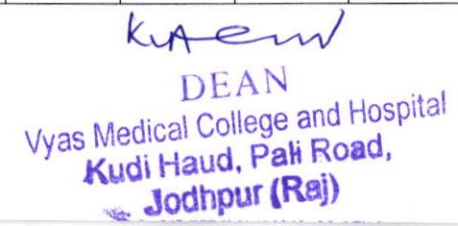 DEAN
Vyas Medical College and Hospital
Kudi Haud, Pali Road,
Jodhpur (Raj)